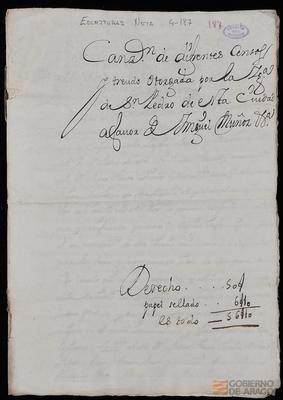 ESCRITURAS NOTR 4-187
187
Canz.n de diferentes Censos
y treudo otorgada por la
de S.n Pedro de esta Ciudad
a favor de Miguel Muñoz
Derecho . . . 50
papel sellado . . . 6
es todo 56
GOBIERNO
DE ARAGON